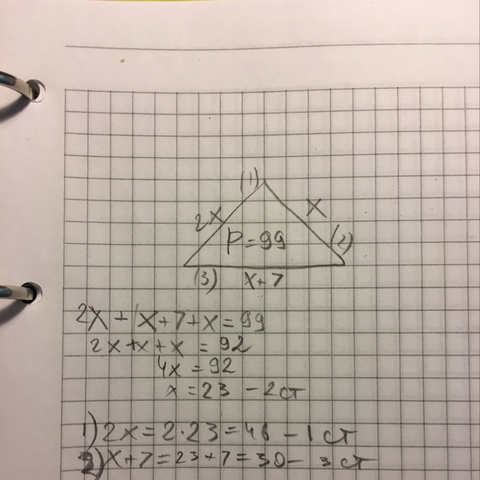 (1)
2x
x
P=99
(2)
(3)
x+7
2x+x+7+x=99
2x+x+x=92
4x=92
x=23 - 2ст
1) 2x=2·23=46 - 1 ст
2) x+7=23+7=30 - 3 ст